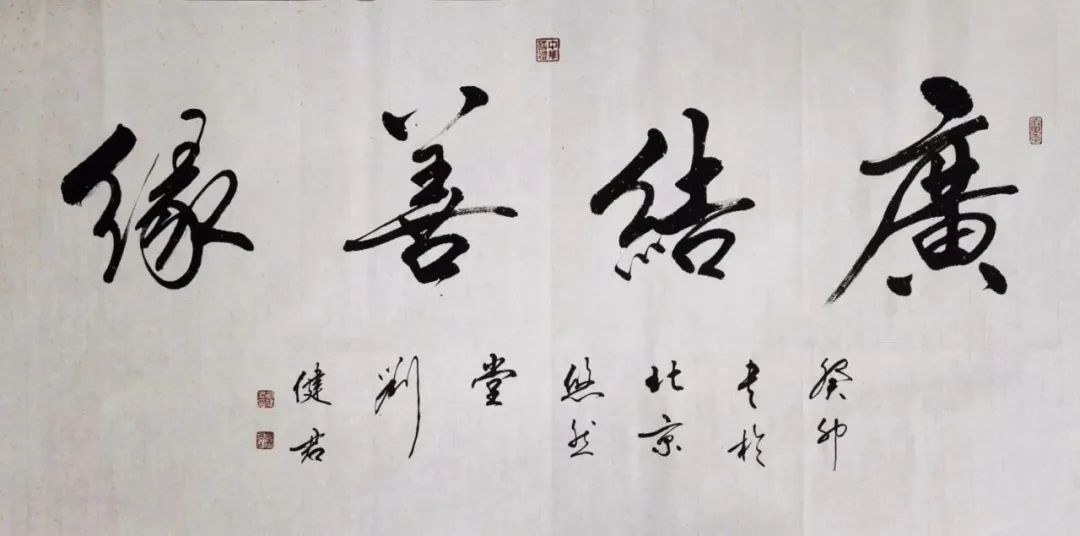 廣結善緣
癸卯
书於
北京
悠然
堂
劉
健君